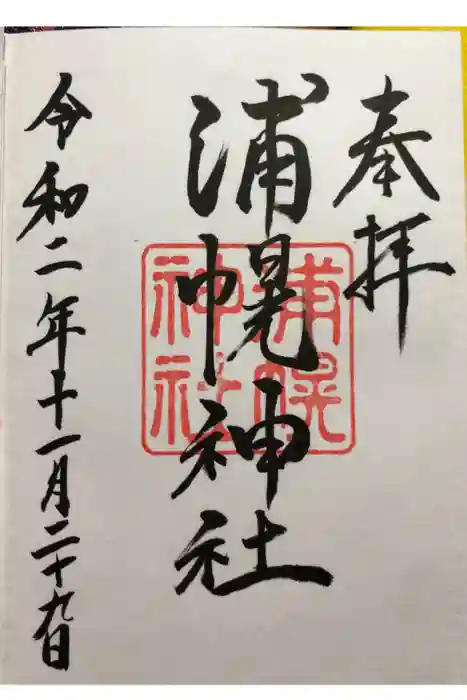 奉拝
浦幌神社
浦幌神社
令和二年十一月二十九日